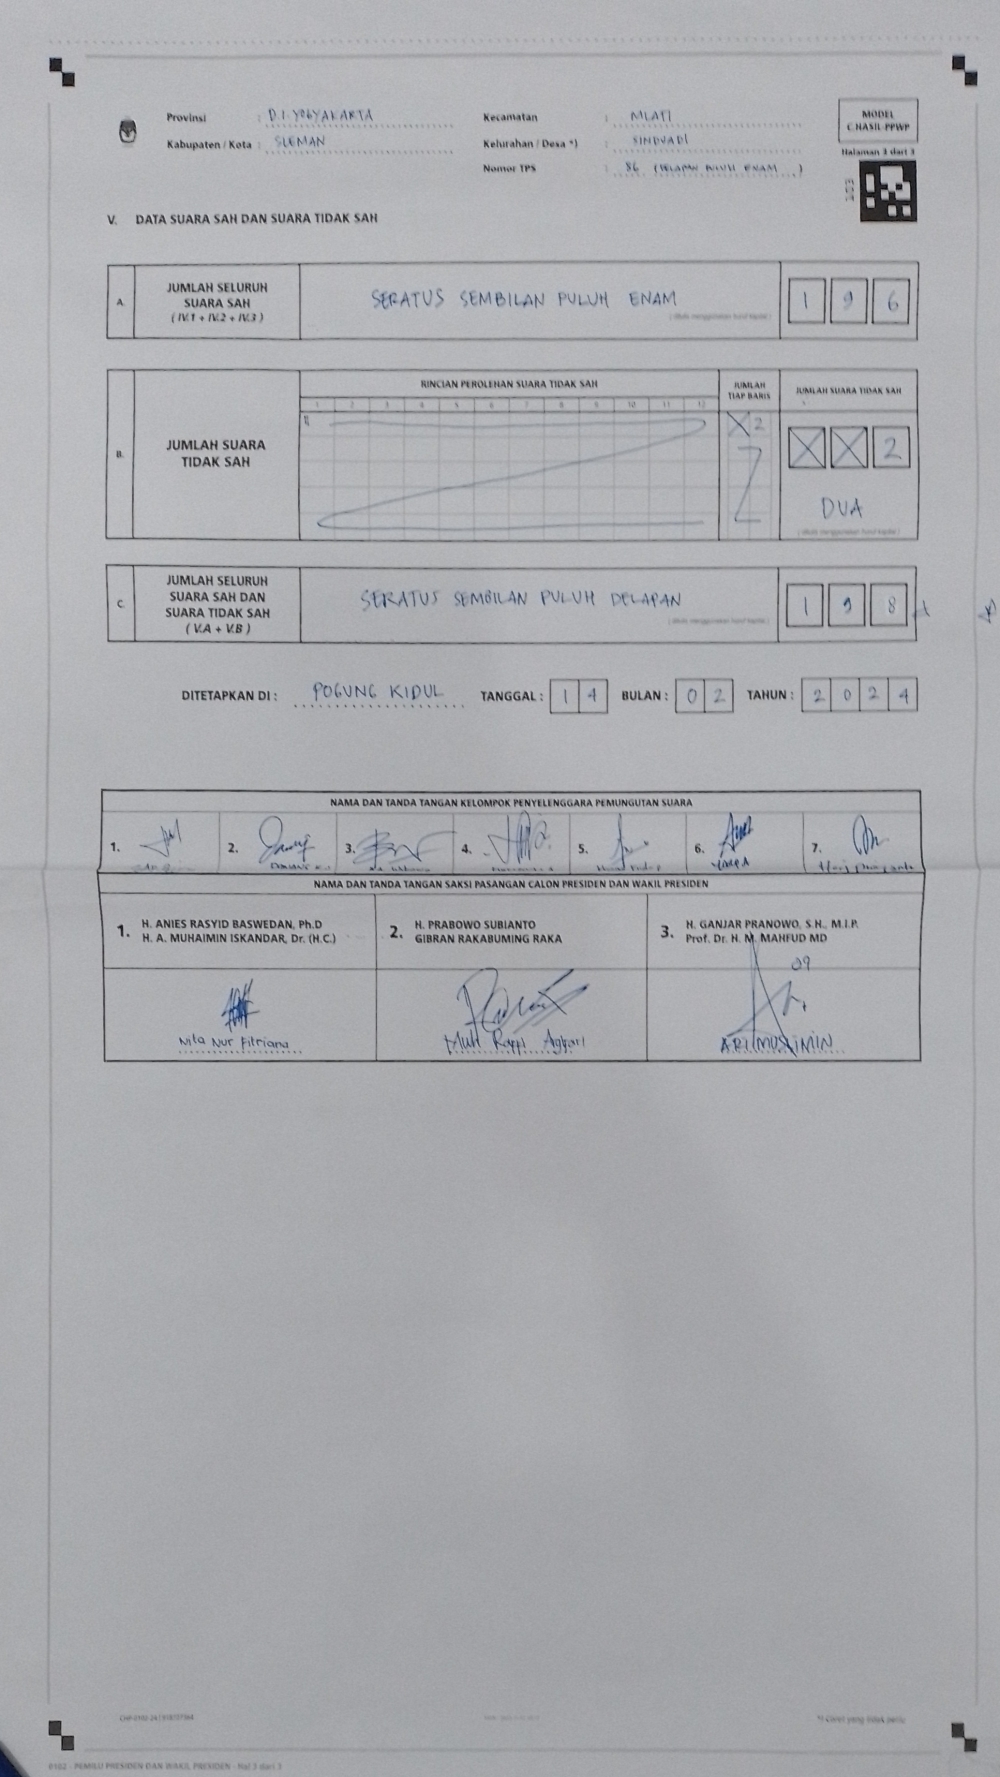 Provinsi : D.I. YOGYAKARTA
Kabupaten / Kota : SLEMAN
Kecamatan : MLATI
Kelurahan / Desa *) : SINDUADI
Nomor TPS : 86 (DELAPAN PULUH ENAM)
MODEL
C.HASIL-PPWP
Halaman 3 dari 3
V. DATA SUARA SAH DAN SUARA TIDAK SAH
A. JUMLAH SELURUH
SUARA SAH
( IV.1 + IV.2 + IV.3 )
SERATUS SEMBILAN PULUH ENAM
1 9 6
RINCIAN PEROLEHAN SUARA TIDAK SAH
JUMLAH
TIAP BARIS
JUMLAH SUARA TIDAK SAH
1 2 3 4 5 6 7 8 9 10 11 12
B. JUMLAH SUARA
TIDAK SAH
X 2
X X 2
DUA
C. JUMLAH SELURUH
SUARA SAH DAN
SUARA TIDAK SAH
( V.A + V.B )
SERATUS SEMBILAN PULUH DELAPAN
1 9 8
DITETAPKAN DI : POGUNG KIDUL TANGGAL : 1 4 BULAN : 0 2 TAHUN : 2 0 2 4
NAMA DAN TANDA TANGAN KELOMPOK PENYELENGGARA PEMUNGUTAN SUARA
1. 2. 3. 4. 5. 6. 7.
NAMA DAN TANDA TANGAN SAKSI PASANGAN CALON PRESIDEN DAN WAKIL PRESIDEN
1. H. ANIES RASYID BASWEDAN, Ph.D
H. A. MUHAIMIN ISKANDAR, Dr. (H.C.)
2. H. PRABOWO SUBIANTO
GIBRAN RAKABUMING RAKA
3. H. GANJAR PRANOWO, S.H., M.I.P.
Prof. Dr. H. M. MAHFUD MD
Nita Nur Fitriana
ARI MUSLIMIN
*) Coret yang tidak perlu
0102 - PEMILU PRESIDEN DAN WAKIL PRESIDEN - Hal 3 dari 3